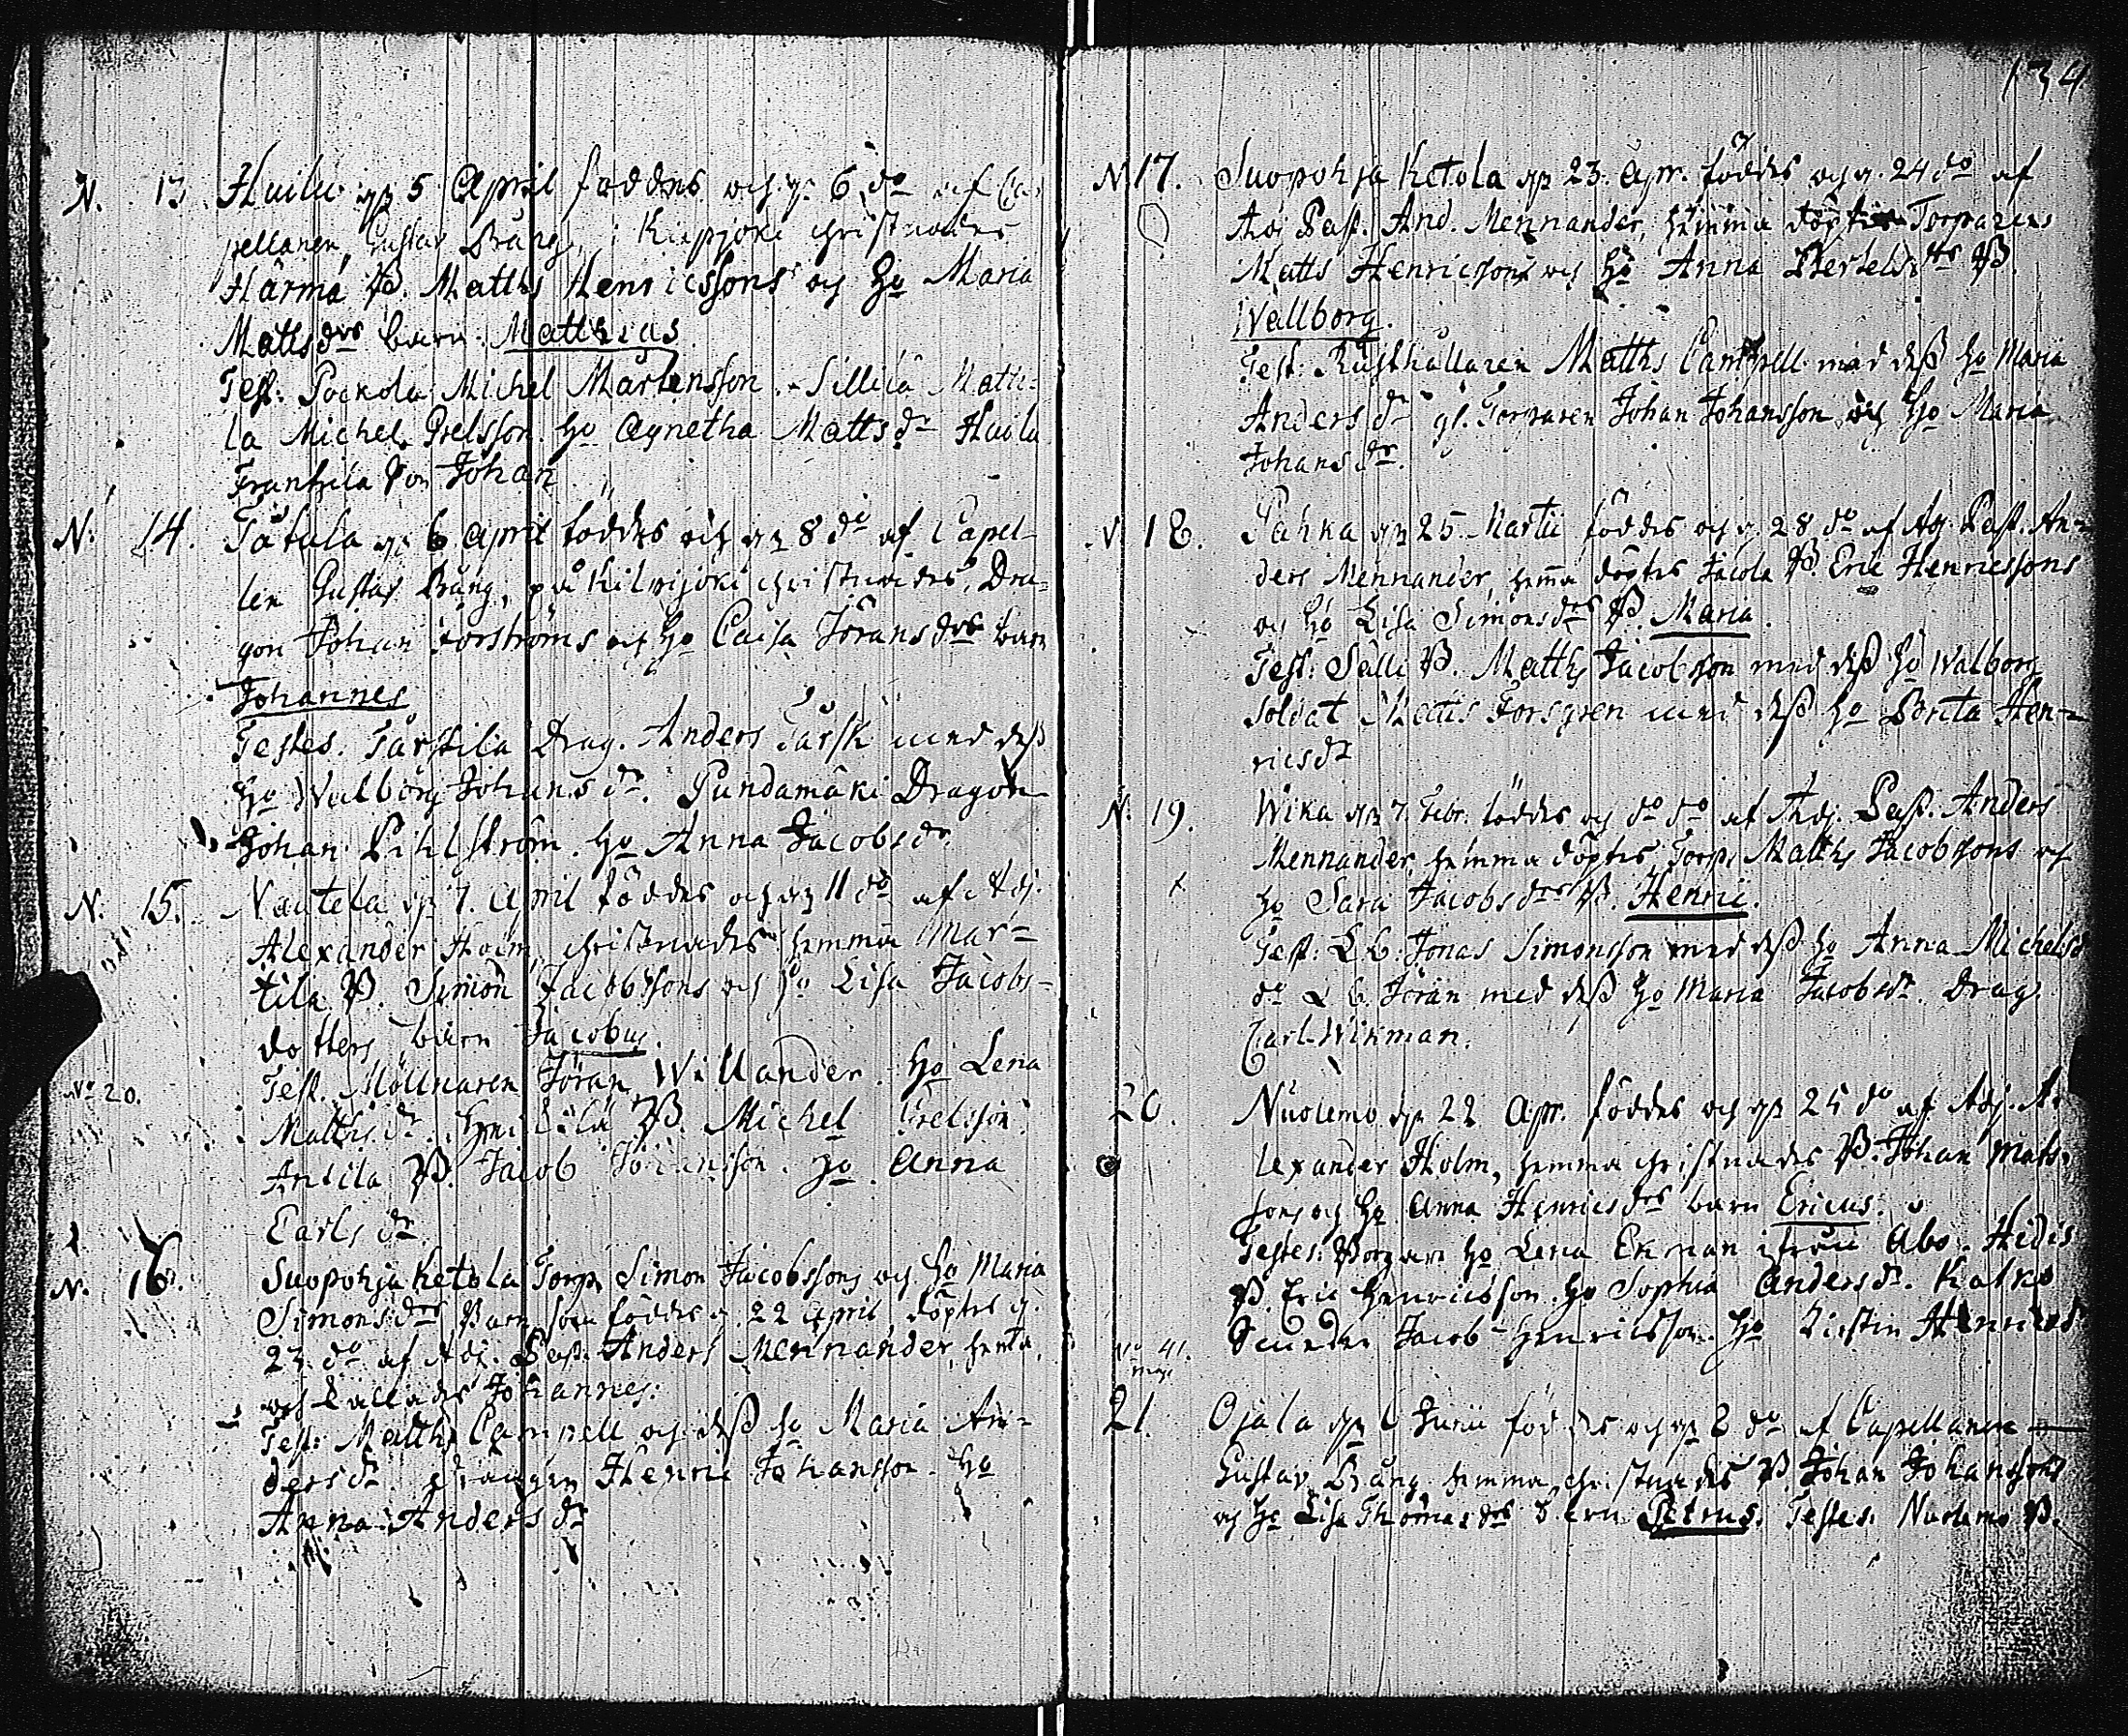 134
N. 13. Huilu 5 April föddes och 6 do af Ca-
pellanen Gustav Bång, i christnades
Härmä B. Matths Henricssons och Ho Maria
Mattsdrs barn Matthias
Test: Pockola Michel Mårtensson. Sillilä Matti-
la Michel Grelsson. Ho Agnetha Mattsdr Huilu
Franttila Son Johan
N: 14. Tåtula 6 April föddes och 8 do af Capel-
len Gustav Bång, på christnades, Dra-
gon Johan Forströms och Ho Caisa Jöransdrs barn
Johannes
Testes. Tarstila Drag. Anders Tarsk med dess
Ho Walborg Johansdr. Pundamäki Dragon
Johan Pihlström. Ho Anna Jacobsdr.
N. 15. Nautela 7. April föddes och 11 do af Adj.
Alexander Holm, christnades hemma Mar-
tila B. Simon Jacobssons och Ho Lisa Jacobs-
dotters barn Jacobus.
Test. Möllnaren Jöran Willander. Ho Lena
No 20.
Mattsdr. B. Michel Grelsson.
Antila B. Jacob Johansson. Ho Anna
Carlsdr.
N. 16. Suopohja Ketola Torp. Simon Jacobssons och Ho Maria
Simonsdrs Barn, som föddes 22 April, döptes
23 do af Adj. Past. Anders Mennander, hema,
och kallades Johannes.
Test: Matths Campell och dess Ho Maria An-
dersdr. drängen Henric Johansson. Ho
Anna Andersdr
N. 17. Suopohja Ketola 23. Apr. föddes och 24 do af
Adj Past. And. Mennander, hemma döptes Torparens
Matts Henricssons och Ho Anna Bertelsdrs B.
Wallborg.
Test: Rusthållaren Matths Campell med dess Ho Maria
Andersdr Torparen Johan Johansson och Ho Maria
Johansdr.
N. 18. Pahka 25. Martii föddes och 28 do af Adj. Past. An-
ders Mennander, hema döptes Jacola B. Eric Henricssons
och Ho Lisa Simonsdrs B. Maria.
Test: Sälli B. Matths Jacobsson med dess Ho Walborg
Soldat Matts Forsgren med dess Ho Brita Hen-
ricsdr
N. 19. Wika 7. Febr. föddes och do do af Adj. Past. Anders
Mennander, hemma döptes Torp. Matths Jacobssons och
Ho Sara Jacobsdrs B. Henric.
Test: L B. Jonas Simonsson med dess Ho Anna Michelsd
do L B. Jöran med dess Ho Maria Jacobsdr. Drag.
Carl Wikman.
20. Nuolemo 22 Apr. föddes och 25 do af Adj. A-
lexander Holm, hemma christnades B. Johan Mats-
sons och Ho Anna Henricsdrs barn Ericus.
Testes: Borgare Ho Lena Ekman ifrån Åbo. Heidis
B. Eric Henricsson. Ho Sophia Andersdr. Katko
Jacob Henricsson. Ho Kirstin Henricsd
No 41.
21. Ojala 6 Junii föddes och 8 do af Capellanen
Gustav Bång, hemma christnades B. Johan Johanssons
och Ho Lisa Thomasdrs barn Petrus. Testes: Nuolemo B.